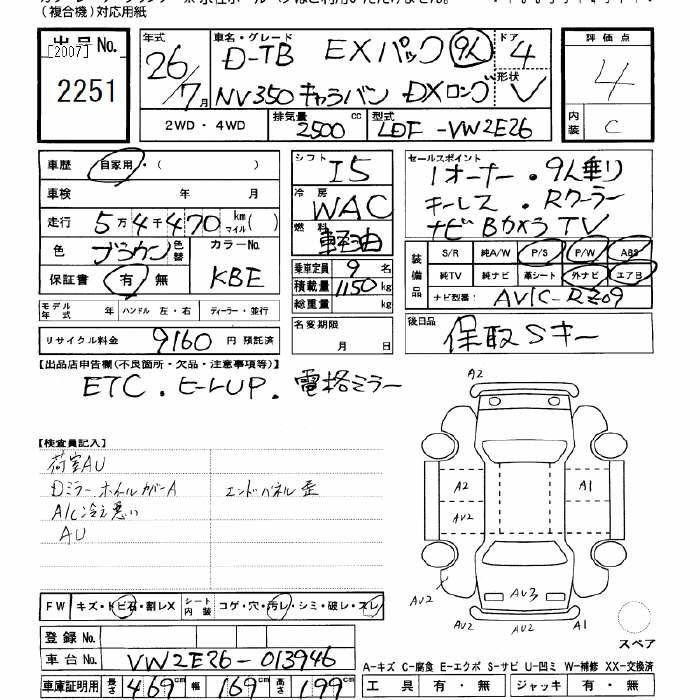 (複合機)対応用紙
出品No.
[2007]
2251
年式
26/7月
車名・グレード
D-TB EXパック 9人
NV350キャラバン DXロング
ドア
4
形状
V
評価点
4
内装
C
2WD・4WD
排気量 2500 cc
型式 LDF-VW2E26
車歴 自家用・( )
車検 年 月
走行 5万4千470 km マイル( )
色 ブラウン 色替
カラーNo. KBE
保証書 有 無
モデル年式 年 ハンドル 左・右 ディーラー・並行
リサイクル料金 9160 円 預託済
シフト I5
冷房 WAC
燃料 軽油
乗車定員 9 名
積載量 1150 kg
総重量 kg
名変期限
月 日
セールスポイント
1オーナー・9人乗り
キーレス・Rクーラー
ナビ Bカメラ TV
装備品
S/R 純A/W P/S P/W ABS
純TV 純ナビ 革シート 外ナビ エアB
ナビ型番: AVIC-RZ09
後日品
保取Sキー
【出品店申告欄(不良箇所・欠品・注意事項等)】
ETC. ヒールUP. 電格ミラー
【検査員記入】
荷室AU
Dミラー ホイルカバーA エンドパネル歪
A/C冷え悪い
AU
A2
A2
AV2
A1
AV2
AV2
AV3
A2
A1
スペア
FW キズ・トビ石・割レX シート内装 コゲ・穴・汚レ・シミ・破レ・スレ
登録No.
車台No. VW2E26-013946
車庫証明用 長さ 469cm 幅 169cm 高さ 199cm
A-キズ C-腐食 E-エクボ S-サビ U-凹ミ W-補修 XX-交換済
工具 有・無 ジャッキ 有・無